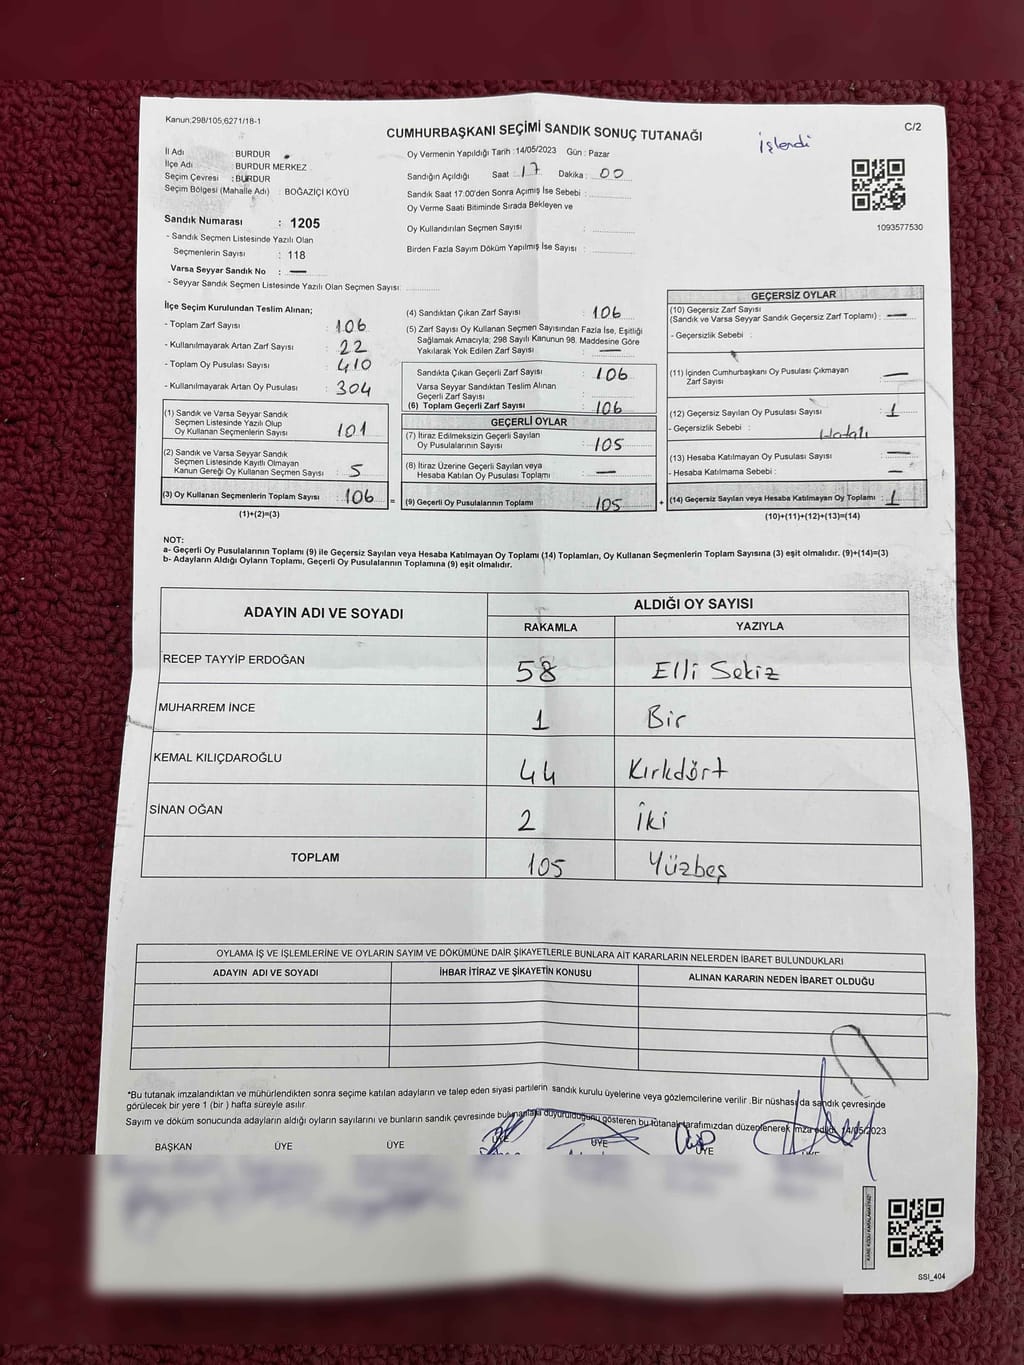 Kanun;298/105;6271/18-1
CUMHURBAŞKANI SEÇİMİ SANDIK SONUÇ TUTANAĞI
işlendi
C/2
İl Adı : BURDUR
İlçe Adı : BURDUR MERKEZ
Seçim Çevresi : BURDUR
Seçim Bölgesi (Mahalle Adı) : BOĞAZİÇİ KÖYÜ
Sandık Numarası : 1205
- Sandık Seçmen Listesinde Yazılı Olan
Seçmenlerin Sayısı : 118
Varsa Seyyar Sandık No : —
- Seyyar Sandık Seçmen Listesinde Yazılı Olan Seçmen Sayısı:
Oy Vermenin Yapıldığı Tarih :14/05/2023 Gün : Pazar
Sandığın Açıldığı Saat : 17 Dakika : 00
Sandık Saat 17.00'den Sonra Açımış İse Sebebi :
Oy Verme Saati Bitiminde Sırada Bekleyen ve
Oy Kullandırılan Seçmen Sayısı :
Birden Fazla Sayım Döküm Yapılmış İse Sayısı :
1093577530
İlçe Seçim Kurulundan Teslim Alınan;
- Toplam Zarf Sayısı : 106
- Kullanılmayarak Artan Zarf Sayısı : 22
- Toplam Oy Pusulası Sayısı : 410
- Kullanılmayarak Artan Oy Pusulası : 304
(1) Sandık ve Varsa Seyyar Sandık
Seçmen Listesinde Yazılı Olup
Oy Kullanan Seçmenlerin Sayısı : 101
(2) Sandık ve Varsa Seyyar Sandık
Seçmen Listesinde Kayıtlı Olmayan
Kanun Gereği Oy Kullanan Seçmen Sayısı : 5
(3) Oy Kullanan Seçmenlerin Toplam Sayısı : 106
(1)+(2)=(3)
(4) Sandıktan Çıkan Zarf Sayısı : 106
(5) Zarf Sayısı Oy Kullanan Seçmen Sayısından Fazla İse, Eşitliği
Sağlamak Amacıyla; 298 Sayılı Kanunun 98. Maddesine Göre
Yakılarak Yok Edilen Zarf Sayısı : —
Sandıkta Çıkan Geçerli Zarf Sayısı : 106
Varsa Seyyar Sandıktan Teslim Alınan
Geçerli Zarf Sayısı :
(6) Toplam Geçerli Zarf Sayısı : 106
GEÇERLİ OYLAR
(7) İtiraz Edilmeksizin Geçerli Sayılan
Oy Pusulalarının Sayısı : 105
(8) İtiraz Üzerine Geçerli Sayılan veya
Hesaba Katılan Oy Pusulası Toplamı : —
= (9) Geçerli Oy Pusulalarının Toplamı : 105
GEÇERSİZ OYLAR
(10) Geçersiz Zarf Sayısı
(Sandık ve Varsa Seyyar Sandık Geçersiz Zarf Toplamı) : —
- Geçersizlik Sebebi :
(11) İçinden Cumhurbaşkanı Oy Pusulası Çıkmayan
Zarf Sayısı : —
(12) Geçersiz Sayılan Oy Pusulası Sayısı : 1
- Geçersizlik Sebebi : Hatalı
(13) Hesaba Katılmayan Oy Pusulası Sayısı : —
- Hesaba Katılmama Sebebi : —
+ (14) Geçersiz Sayılan veya Hesaba Katılmayan Oy Toplamı : 1
(10)+(11)+(12)+(13)=(14)
NOT:
a- Geçerli Oy Pusulalarının Toplamı (9) ile Geçersiz Sayılan veya Hesaba Katılmayan Oy Toplamı (14) Toplamları, Oy Kullanan Seçmenlerin Toplam Sayısına (3) eşit olmalıdır. (9)+(14)=(3)
b- Adayların Aldığı Oyların Toplamı, Geçerli Oy Pusulalarının Toplamına (9) eşit olmalıdır.
ADAYIN ADI VE SOYADI ALDIĞI OY SAYISI
RAKAMLA YAZIYLA
RECEP TAYYİP ERDOĞAN 58 Elli Sekiz
MUHARREM İNCE 1 Bir
KEMAL KILIÇDAROĞLU 44 Kırkdört
SİNAN OĞAN 2 İki
TOPLAM 105 Yüzbeş
OYLAMA İŞ VE İŞLEMLERİNE VE OYLARIN SAYIM VE DÖKÜMÜNE DAİR ŞİKAYETLERLE BUNLARA AİT KARARLARIN NELERDEN İBARET BULUNDUKLARI
ADAYIN ADI VE SOYADI İHBAR İTİRAZ VE ŞİKAYETİN KONUSU ALINAN KARARIN NEDEN İBARET OLDUĞU
*Bu tutanak imzalandıktan ve mühürlendikten sonra seçime katılan adayların ve talep eden siyasi partilerin sandık kurulu üyelerine veya gözlemcilerine verilir .Bir nüshası da sandık çevresinde
görülecek bir yere 1 (bir ) hafta süreyle asılır.
Sayım ve döküm sonucunda adayların aldığı oyların sayılarını ve bunların sandık çevresinde bulunanlara duyurulduğunu gösteren bu tutanak tarafımızdan düzenlenerek imza edildi. 14/05/2023
BAŞKAN ÜYE ÜYE ÜYE ÜYE ÜYE ÜYE
SSI_404